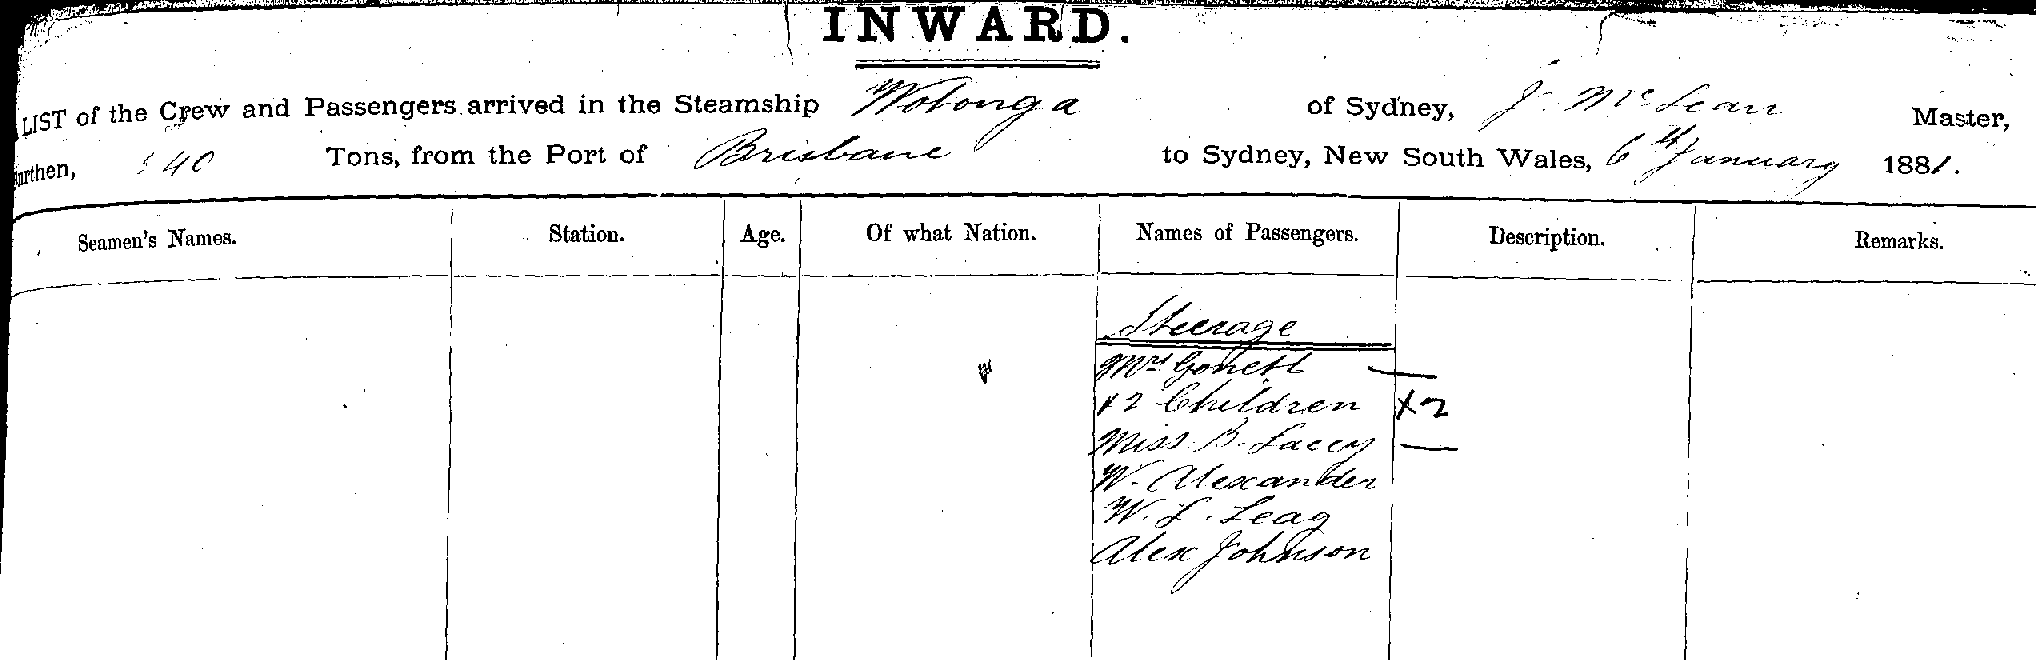 INWARD.
LIST of the Crew and Passengers arrived in the Steamship Wotonga of Sydney, J. McLean Master,
Burthen, 540 Tons, from the Port of Brisbane to Sydney, New South Wales, 6th January 1881.
Seamen's Names. Station. Age. Of what Nation. Names of Passengers. Description. Remarks.
Steerage
Mrs —
+2 Children +2
Miss B. Lacey —
W. Alexander
W. L. Leag
Alex Johnson